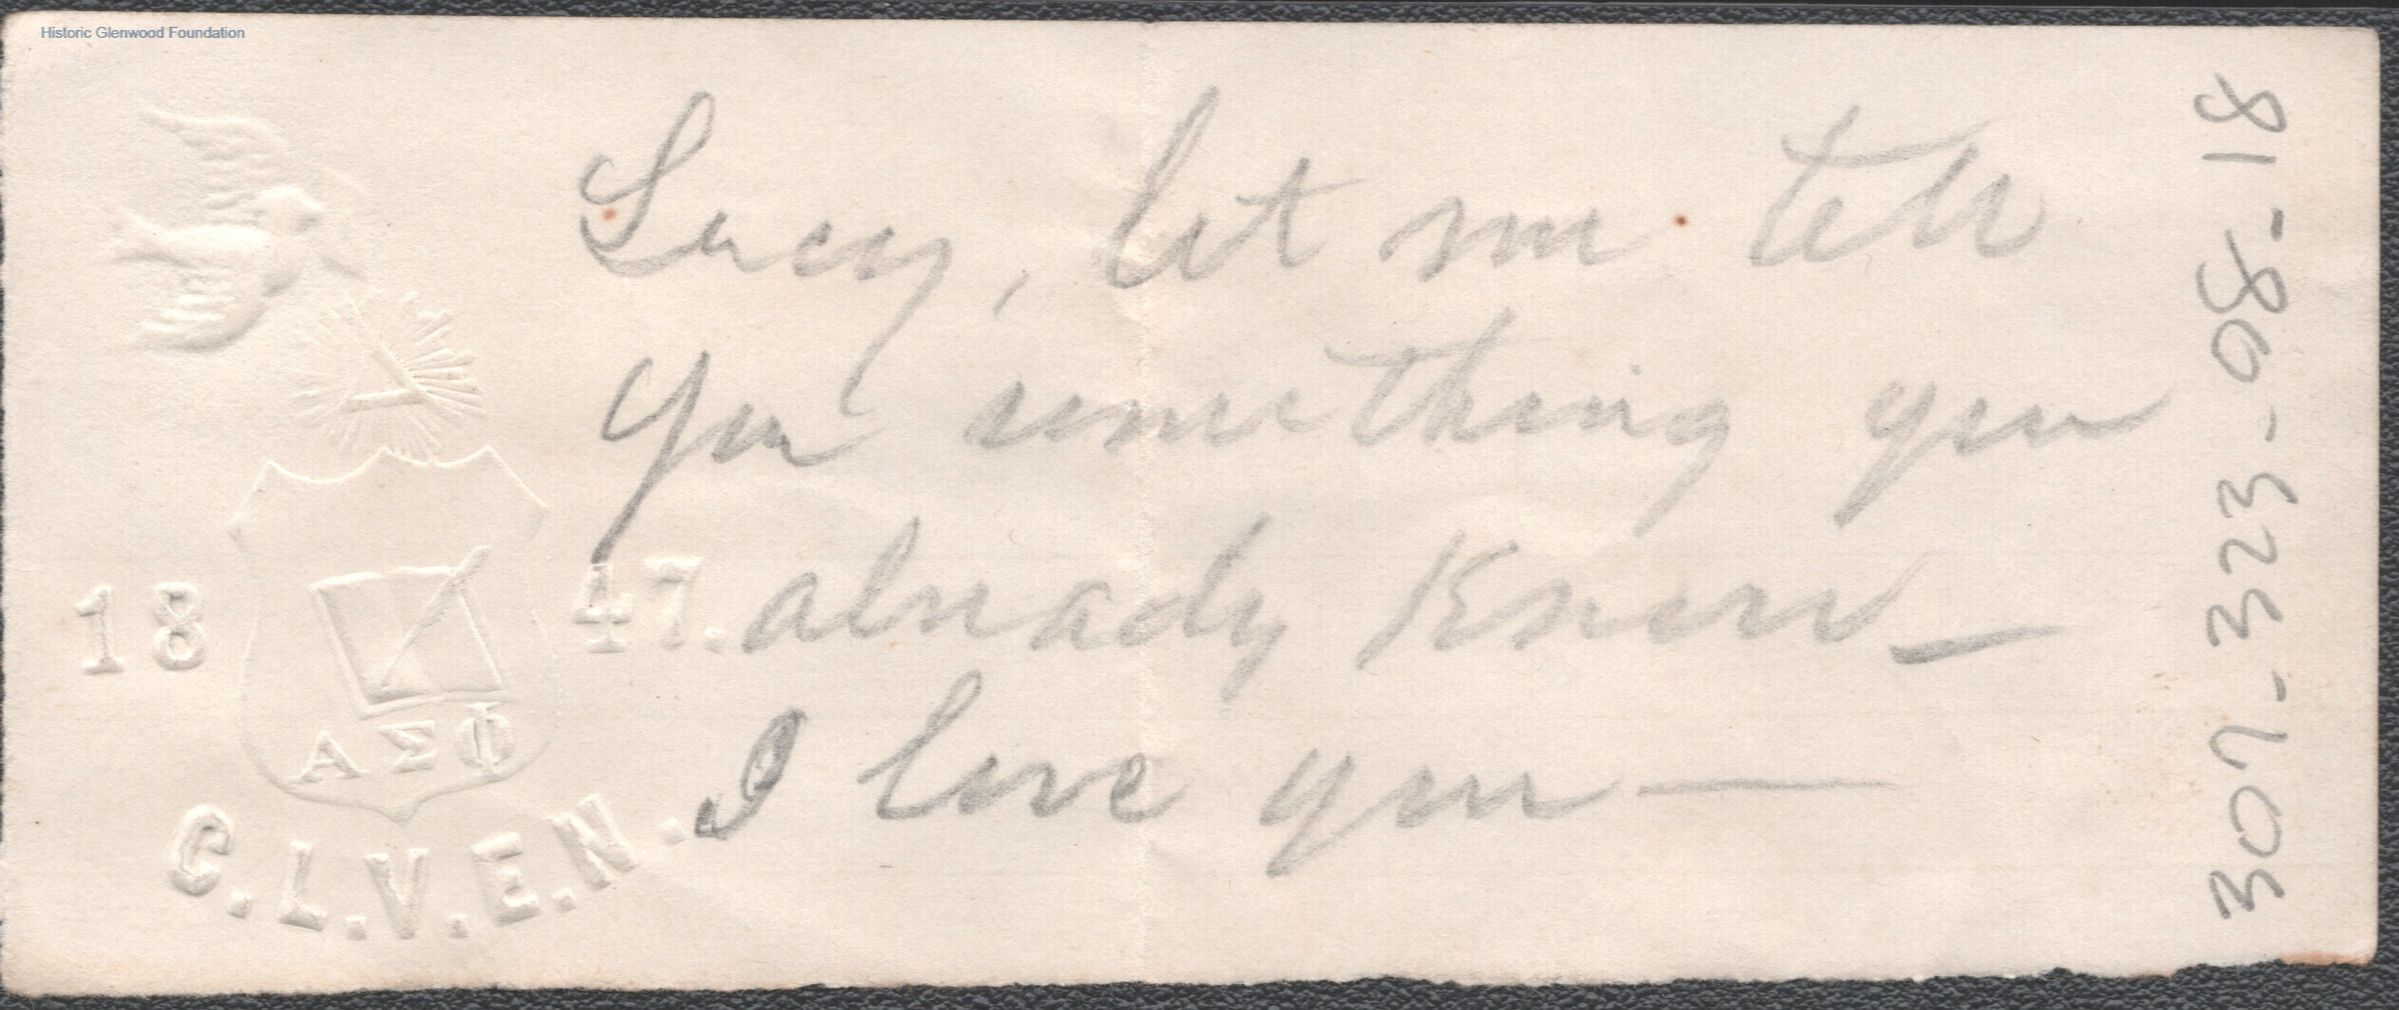 Historic Glenwood Foundation
Lucy, let me tell
you something you
already Know —
I love you —
1847.
ΑΣΦ
C.L.V.E.N.
307-323-08-18